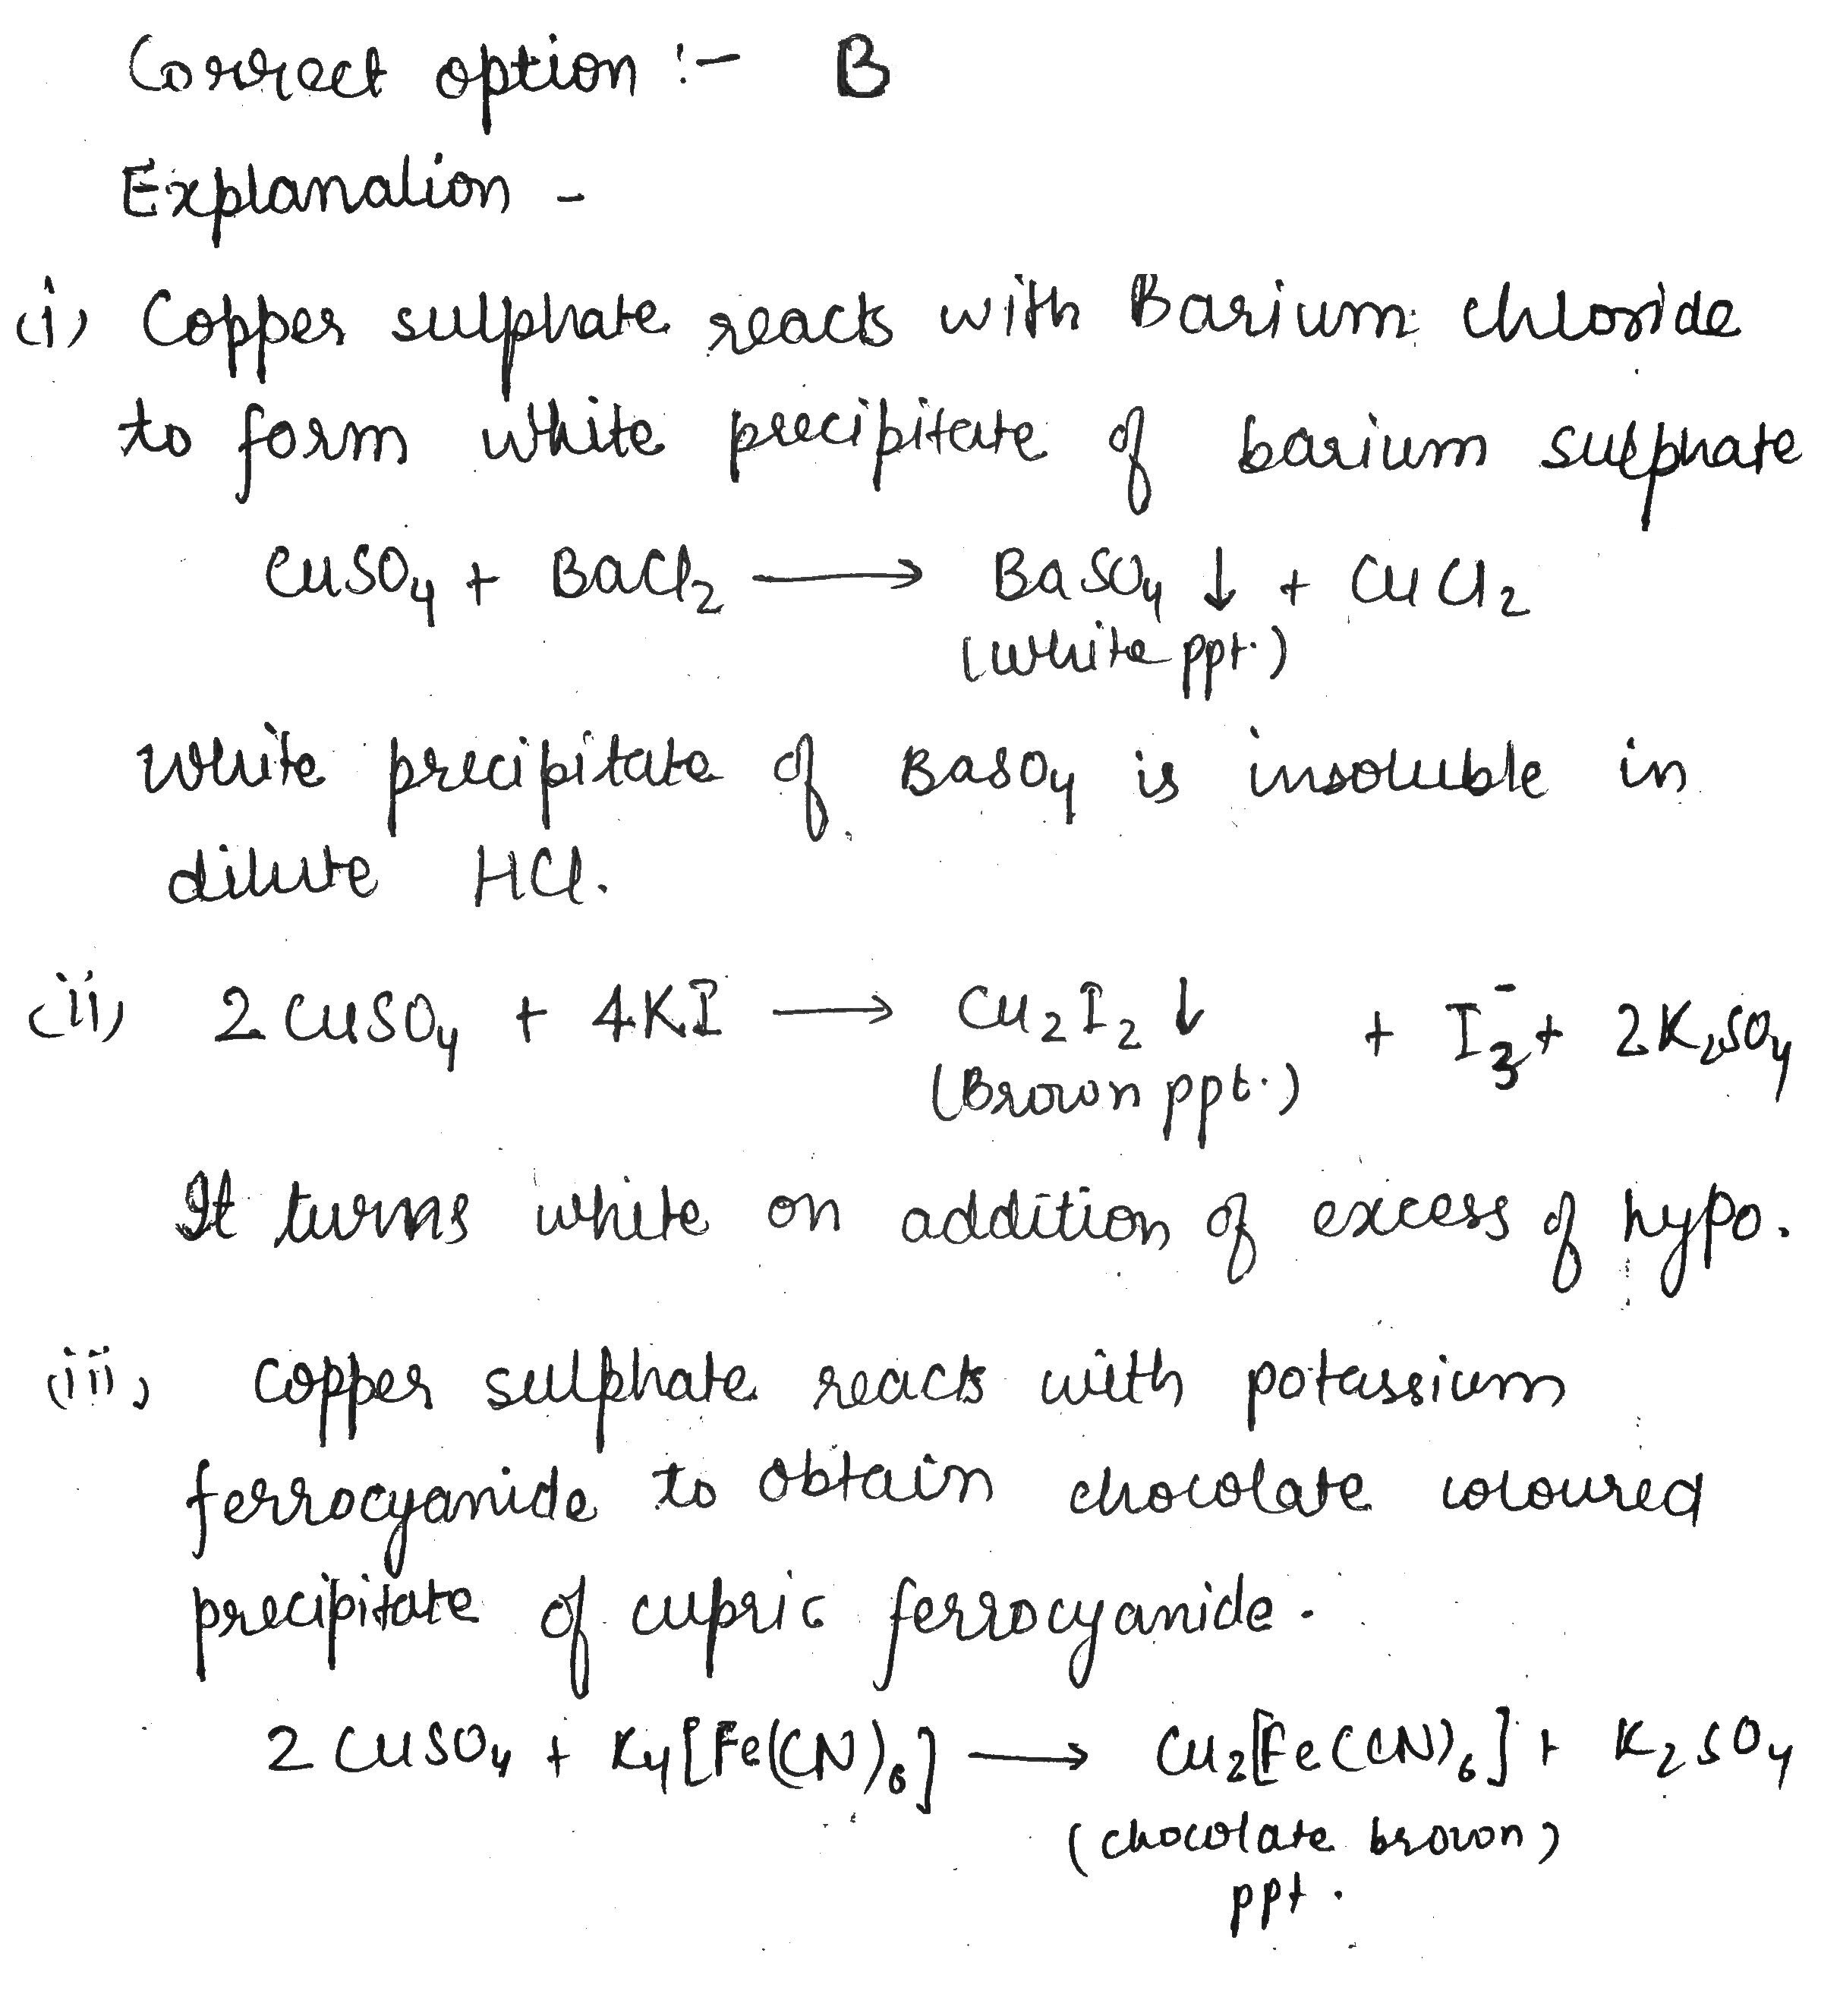 Correct option :- B
Explanation -
(i) Copper sulphate reacts with Barium chloride
to form white precipitate of barium sulphate
CuSO₄ + BaCl₂ ⟶ BaSO₄ ↓ + CuCl₂
(white ppt.)
White precipitate of BaSO₄ is insoluble in
dilute HCl.
(ii) 2 CuSO₄ + 4KI ⟶ Cu₂I₂ ↓ + I₃⁻ + 2K₂SO₄
(Brown ppt.)
It turns white on addition of excess of hypo.
(iii) Copper sulphate reacts with potassium
ferrocyanide to obtain chocolate coloured
precipitate of cupric ferrocyanide.
2 CuSO₄ + K₄[Fe(CN)₆] ⟶ Cu₂[Fe(CN)₆] + K₂SO₄
(chocolate brown)
ppt.